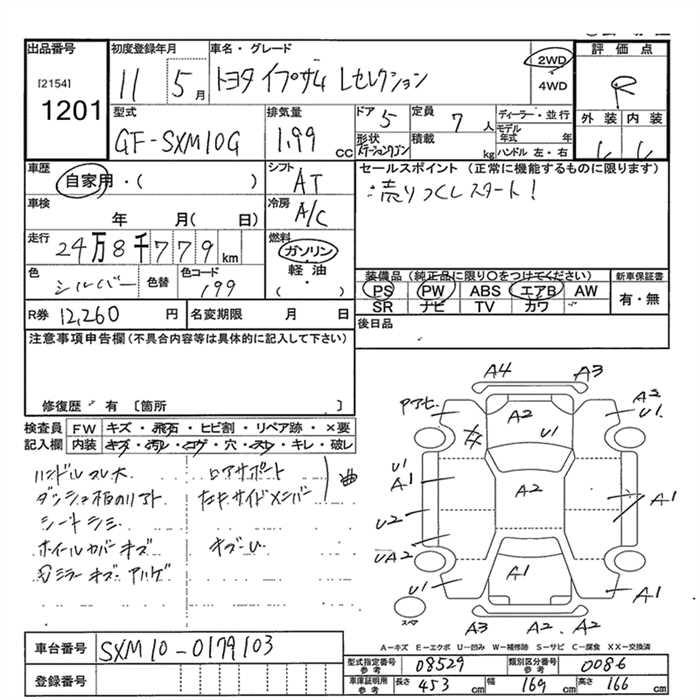 出品番号 初度登録年月 車名・グレード 評価点
[2154]
1201
11 5月 トヨタ イプサム Lセレクション 2WD 4WD R
型式 排気量 ドア 定員 ディーラー・並行 外装 内装
GF-SXM10G 1.99 cc 5 7人 モデル年式 年
形状 ステーションワゴン 積載 kg ハンドル 左・右
車歴 シフト セールスポイント (正常に機能するものに限ります)
自家用・( ) AT 売りつくしスタート!
車検 冷房
年 月( 日) A/C
走行 燃料
24万8千779km ガソリン
色 色替 色コード 軽油
シルバー 199 ( ・ )
装備品(純正品に限り○をつけてください) 新車保証書
PS PW ABS エアB AW 有・無
SR ナビ TV カワ
R券 12,260 円 名変期限 月 日 後日品
注意事項申告欄(不具合内容等は具体的に記入して下さい)
修復歴 有 〔箇所 〕
検査員 FW キズ・飛石・ヒビ割・リペア跡・×要
記入欄 内装 キズ・汚レ・コゲ・穴・スレ・キレ・破レ
ハンドルスレ大 コアサポート 曲
ダッシュ板のリアト 右サイドメンバー
シートシミ
ホイールカバーキズ キズ・U
ミラーキズ
A4 A3
A2 A2
U1 U1
U1 A1 A2 A1
U2
UA2
U1 A1 A1
スペア
A3 A2 A2
A=キズ E=エクボ U=凹み W=補修跡 S=サビ C=腐食 XX=交換済
車台番号 SXM10-0179103
型式指定番号 参考 08529 類別区分番号 参考 0086
登録番号
車庫証明用 参考 長さ 453 cm 幅 169 cm 高さ 166 cm